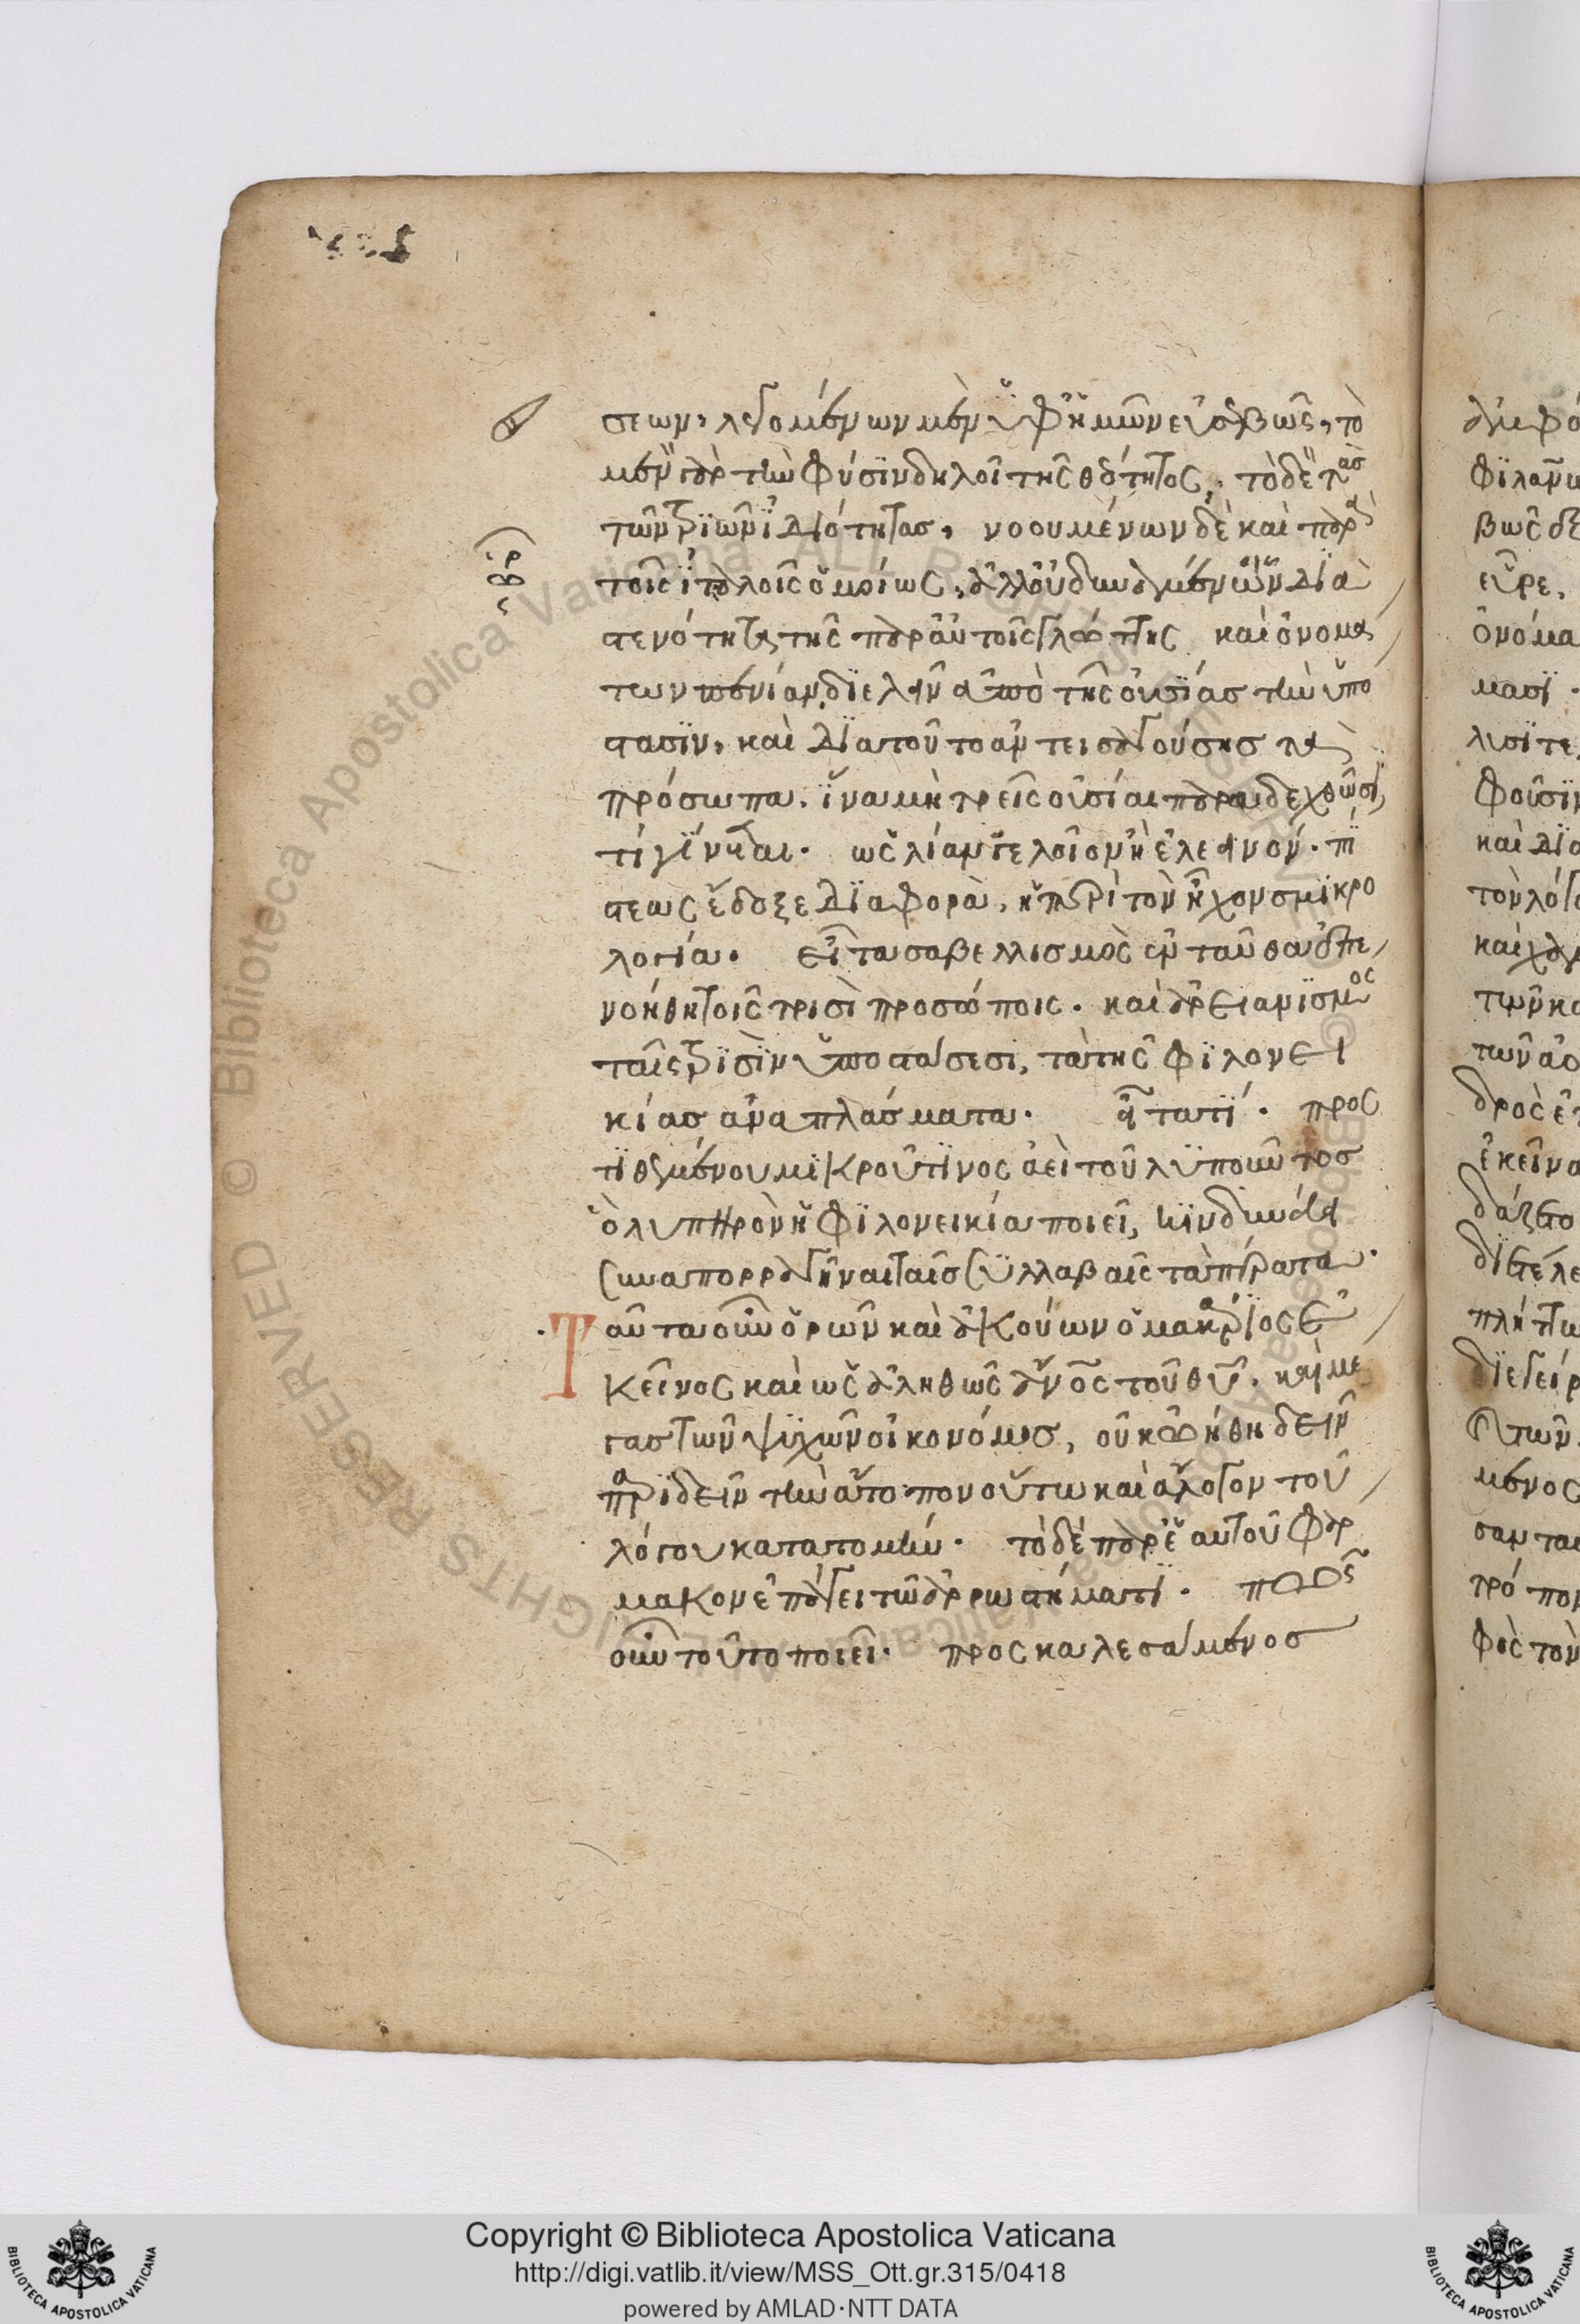 σεων, λεγομένων μὲν ὑφ' ἡμῶν εὐσεβῶς, τὸ
μὲν γὰρ τὴν φύσιν δηλοῖ τῆς θεότητος, τὸ δὲ τὰς
τῶν τριῶν ἰδιότητας, νοουμένων δὲ καὶ παρὰ
τοῖς ἰταλοῖς ὁμοίως, ἀλλ' οὐ δυναμένων διὰ
στενότητα τῆς παρ' αὐτοῖς γλώττης καὶ ὀνομά
των πενίαν, διελεῖν ἀπὸ τῆς οὐσίας τὴν ὑπό
στασιν, καὶ διὰ τοῦτο ἀντεισαγούσης τὰ
πρόσωπα. ἵνα μὴ τρεῖς οὐσίαι παραδεχθῶσι,
τί γίνεται. ὡς λίαν γελοῖον ἢ ἐλεεινόν. πί
στεως ἔδοξε διαφορὰ, ἡ περὶ τὸν ἦχον σμικρο
λογία. εἶτα σαβελλισμὸς ἐνταῦθα ἐπε
νοήθη τοῖς τρισὶ προσώποις. καὶ ἀρειανισμὸς
ταῖς τρισὶν ὑποστάσεσι, τὰ τῆς φιλονει
κίας ἀναπλάσματα. εἶτα τί. προς
τιθεμένου μικροῦ τινος ἀεὶ τοῦ λυποῦντος
ὃ λυπηρὸν ἡ φιλονεικία ποιεῖ, κινδυνεύει
συναπορραγῆναι ταῖς συλλαβαῖς τὰ πέρατα.
Ταῦτα οὖν ὁρῶν καὶ ἀκούων ὁ μακάριος ἐ
κεῖνος καὶ ὡς ἀληθῶς ἄνος τοῦ θυ. καὶ μέ
γας τῶν ψυχῶν οἰκονόμος, οὐκ ᾠήθη δεῖν
περιϊδεῖν τὴν ἄτοπον οὕτω καὶ ἄλογον τοῦ
λόγου κατατομήν. τὸ δὲ παρ' ἑαυτοῦ φάρ
μακον ἐπάγει τῷ ἀρρωστήματι. πῶς
οὖν τοῦτο ποιεῖ. προσκαλεσάμενος
Copyright © Biblioteca Apostolica Vaticana
http://digi.vatlib.it/view/MSS_Ott.gr.315/0418
powered by AMLAD·NTT DATA